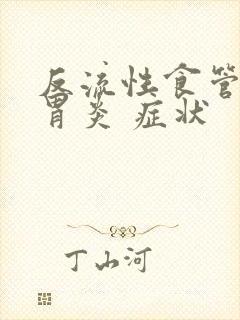 反流性食管
胃炎 症状
丁山河